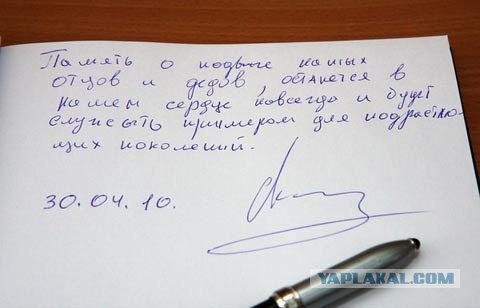 Память о подвиге наших
отцов и дедов, останется в
нашем сердце навсегда и будет
служыть примером для подрастаю-
щих поколений.
30.04.10.
YAPLAKAL.COM